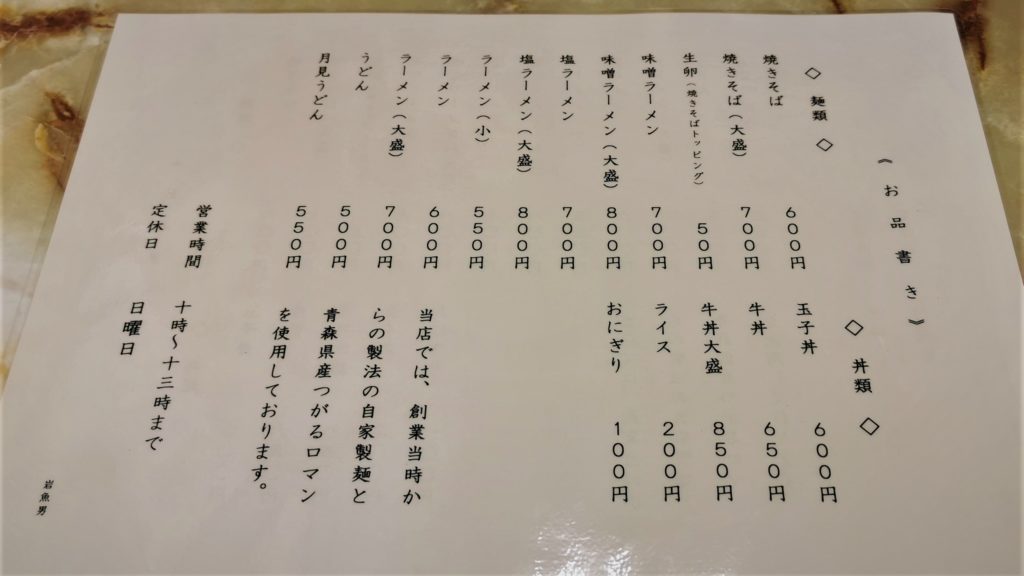 《お品書き》
◇ 麺類 ◇
焼きそば 600円
焼きそば(大盛) 700円
生卵(焼きそばトッピング) 50円
味噌ラーメン 700円
味噌ラーメン(大盛) 800円
塩ラーメン 700円
塩ラーメン(大盛) 800円
ラーメン(小) 550円
ラーメン 600円
ラーメン(大盛) 700円
うどん 500円
月見うどん 550円
◇ 丼類 ◇
玉子丼 600円
牛丼 650円
牛丼大盛 850円
ライス 200円
おにぎり 100円
当店では、創業当時か
らの製法の自家製麺と
青森県産つがるロマン
を使用しております。
営業時間 十時~十三時まで
定休日 日曜日
岩魚男